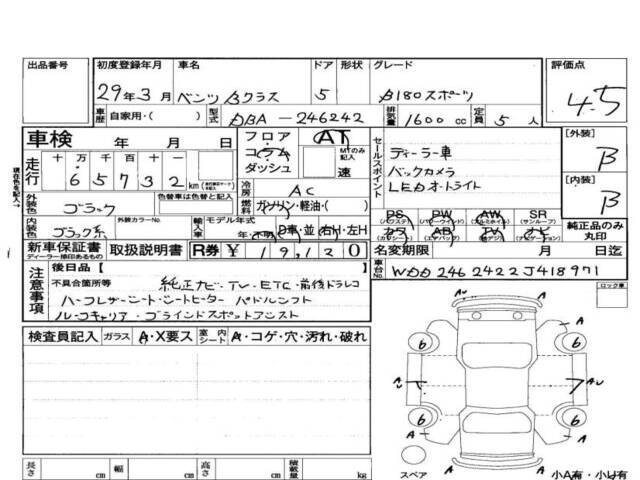 出品番号 初度登録年月 車名 ドア 形状 グレード 評価点
29年3月 ベンツ Bクラス 5 B180スポーツ 4.5
車歴 自家用・( ) 型式 DBA-246242 排気量 1600cc 定員 5人
車検 年 月 日 フロア コラム ダッシュ AT MTのみ記入 速
セールスポイント ディーラー車
バックカメラ
LEDオートライト
[外装] B
[内装] B
走行 十 万 千 百 十 一
65732 km
冷房 AC
燃料 ガソリン・軽油・( )
外装色 ブラック 色替車は色替と記入
PS PW AW SR
(パワステ) (パワーウインド) (アルミホイル) (サンルーフ)
カワ AB TV ナビ
(カワシート) (エアバッグ) (ナビゲーション)
純正品のみ丸印
内装色 ブラック系 外装カラーNo. 輸入車 モデル年式 年・不明 D車・並 右H・左H
新車保証書 ディーラー捺印あるもの 取扱説明書 R券 ¥ 19120
名変期限 月 日迄
車台No. WDD2462422J418971
注意事項 後日品【
不具合箇所等 純正ナビ・TV・ETC・前後ドラレコ
ハーフレザーシート・シートヒーター パドルシフト
ルーフキャリア・ブラインドスポットアシスト
ロック車
検査員記入 ガラス A・X要ス 室内シート A・コゲ・穴・汚れ・破れ
A
6 6
AU AU
6 6
A A
A
スペア 小A有・小U有
長さ cm 幅 cm 高さ cm 積載量 kg
現在色を記入→